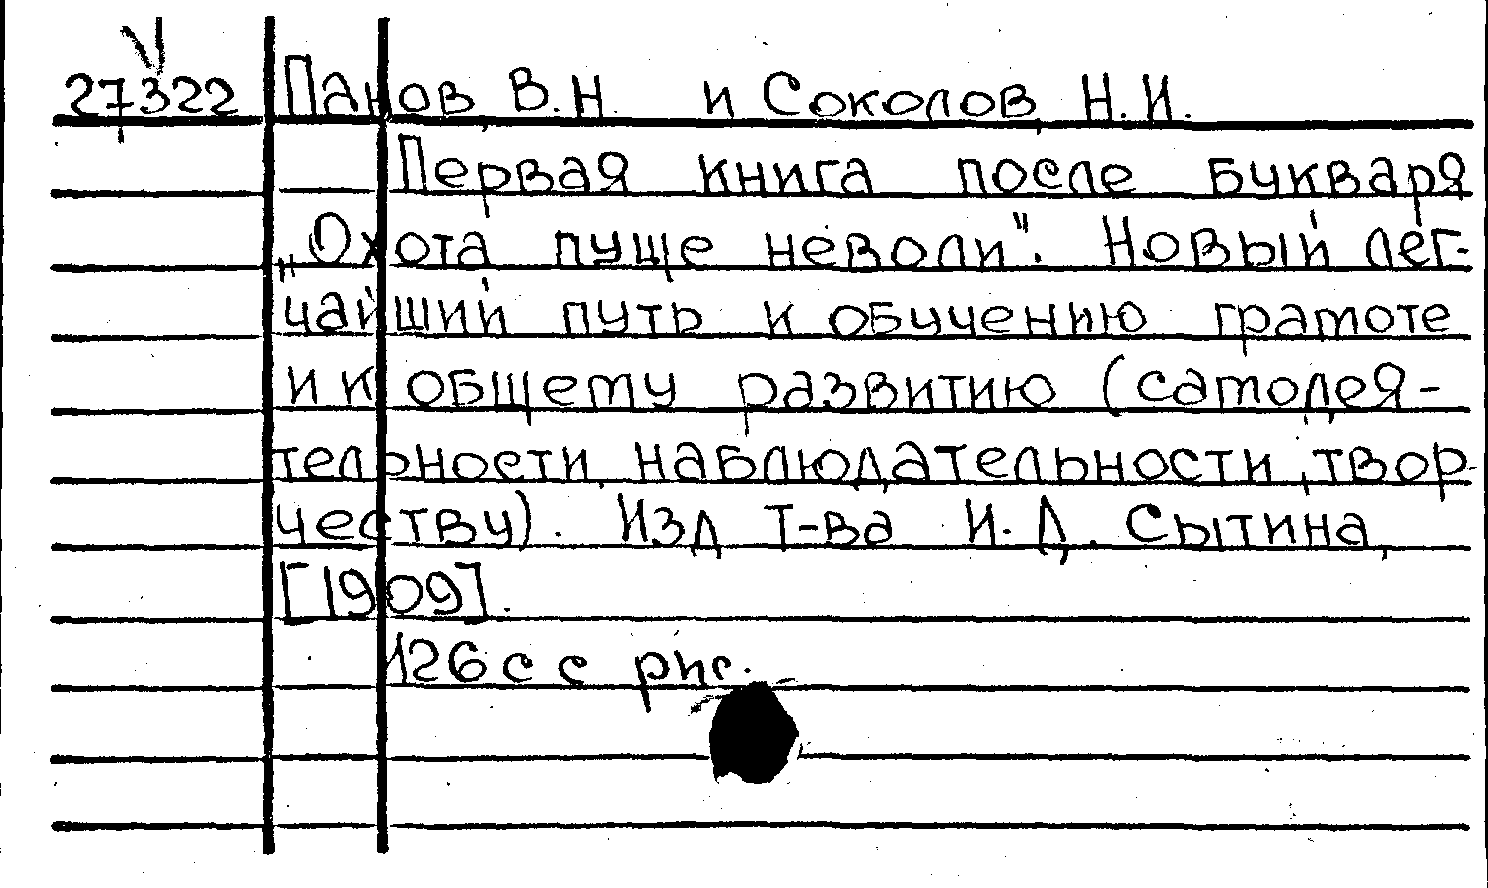 27322 Панов В.Н. и Соколов, Н.И.
Первая книга после букваря
„Охота пуще неволи". Новый лег-
чайший путь к обучению грамоте
и к общему развитию (самодея-
тельности, наблюдательности, твор-
честву). Изд. Т-ва И.Д. Сытина,
[1909].
126 с с рис.